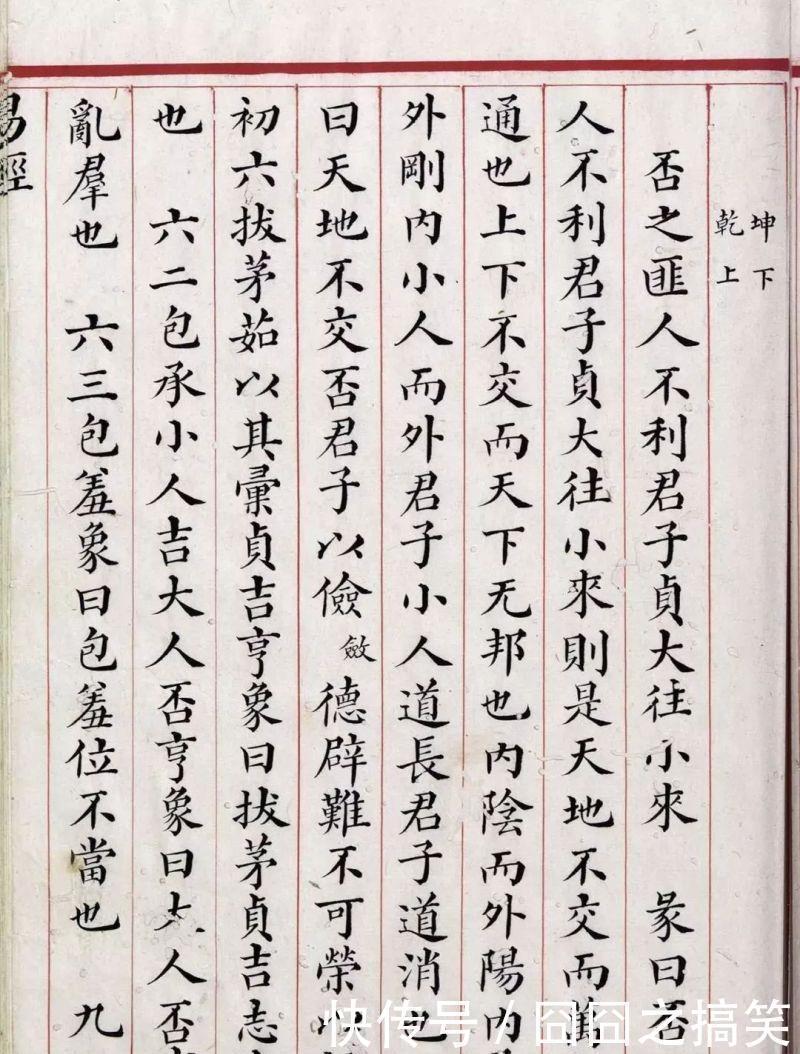 坤下
乾上
否之匪人不利君子貞大往小來　彖曰否
人不利君子貞大往小來則是天地不交而萬
通也上下不交而天下无邦也內陰而外陽內
外剛內小人而外君子小人道長君子道消也
曰天地不交否君子以儉斂德辟難不可榮以
初六拔茅茹以其彙貞吉亨象曰拔茅貞吉志
也　六二包承小人吉大人否亨象曰大人否
亂羣也　六三包羞象曰包羞位不當也　九
易經
快传号 / 囧囧之搞笑